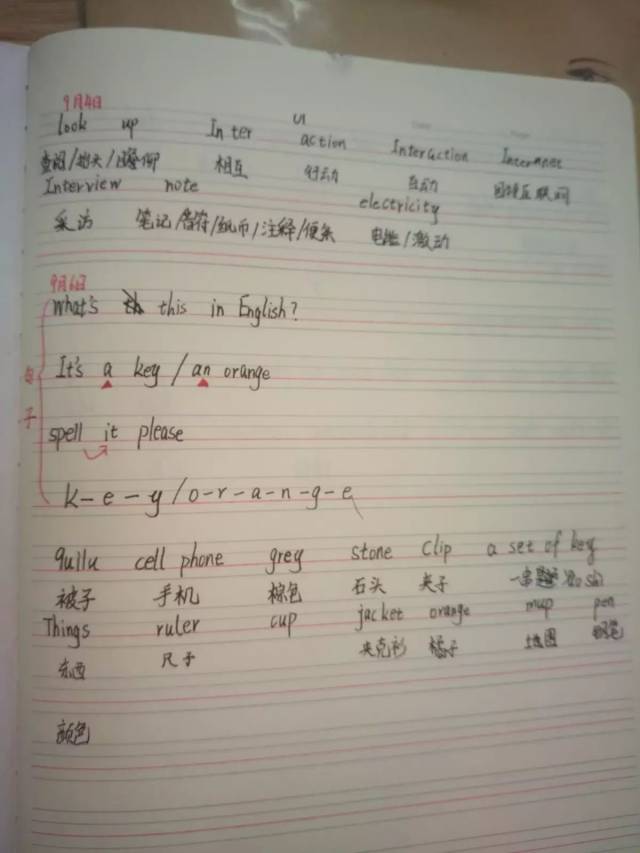 9月4日
look up Inter UI action Interaction Internet
查阅/抬头/ 相互 行动 互动 互联网
Interview note electricity
采访 笔记/音符/纸币/注释/便条 电能/激动
9月6日
What's this in English?
It's a key / an orange
句子
spell it please
k-e-y/o-r-a-n-g-e
quilu cell phone grey stone Clip a set of key
被子 手机 棕色 石头 夹子 一串
Things ruler cup jacket orange mup pen
东西 尺子 夹克衫 橘子 地图 钢笔
颜色